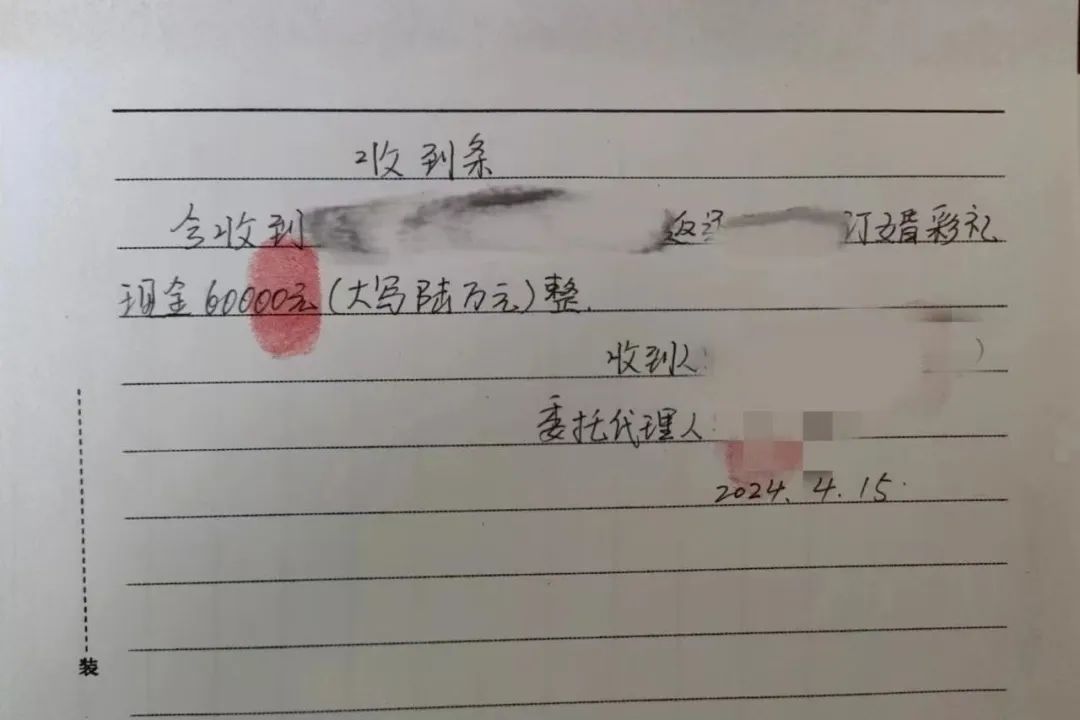 收到条
今收到 返还 订婚彩礼
现金60000元(大写陆万元)整.
收到人: )
委托代理人:
2024.4.15.
装